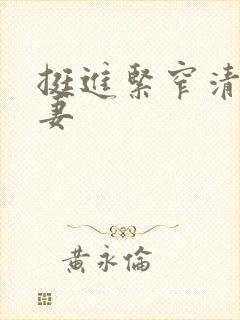 挺進緊窄清
妻
黃永倫